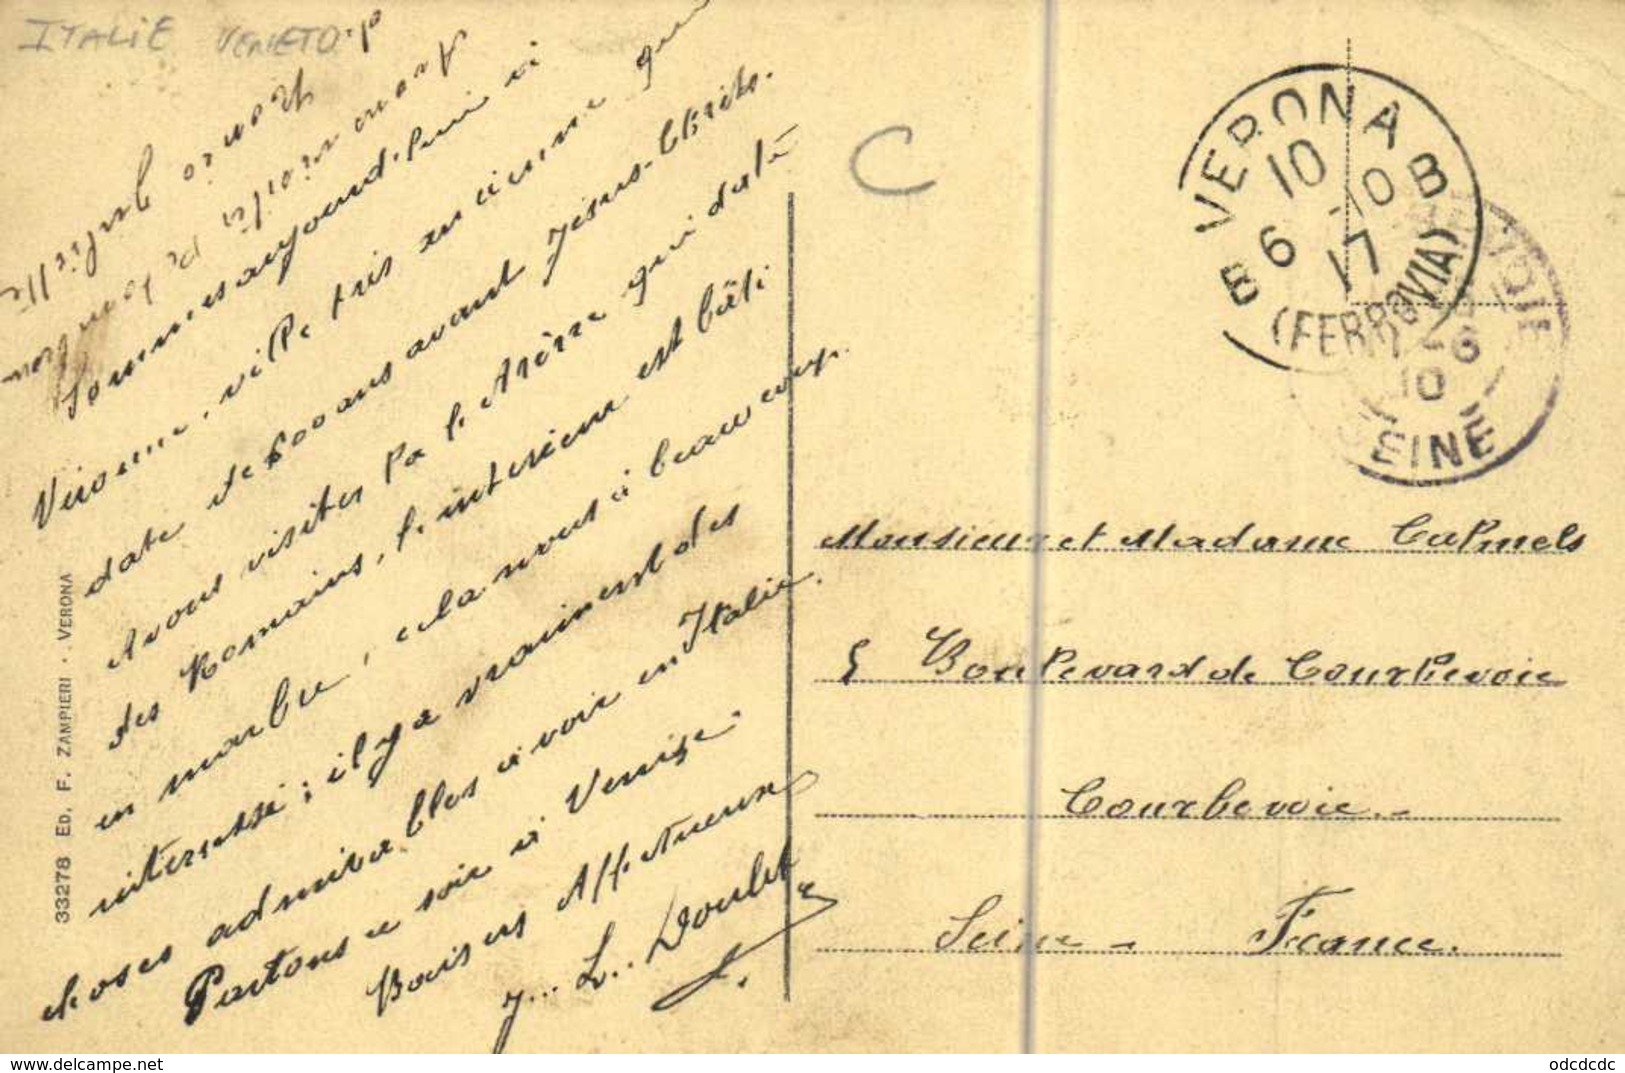 ITALIE VENETO
Sommes aujourd'hui à
Vérone, ville très ancienne qui
date de 600 ans avant Jésus-Christ.
Avons visiter la l'Arène qui date
des Romains, l'intérieur est bâti
en marbre, cela nous à beaucoup
interessé; il y a vraiment des
choses admirables à voir en Italie.
Partons ce soir à Venise.
Baisers Affectueux
J... L.. Doulet
33278 ED. F. ZAMPIERI - VERONA
C
VERONA
10 -10
6 17
B B
(FERROVIA)
6
10
SEINE
Monsieur et Madame Calmels
5 Boulevard de Courbevoie
Courbevoie.-
Seine - France.
www.delcampe.net
odcdcdc